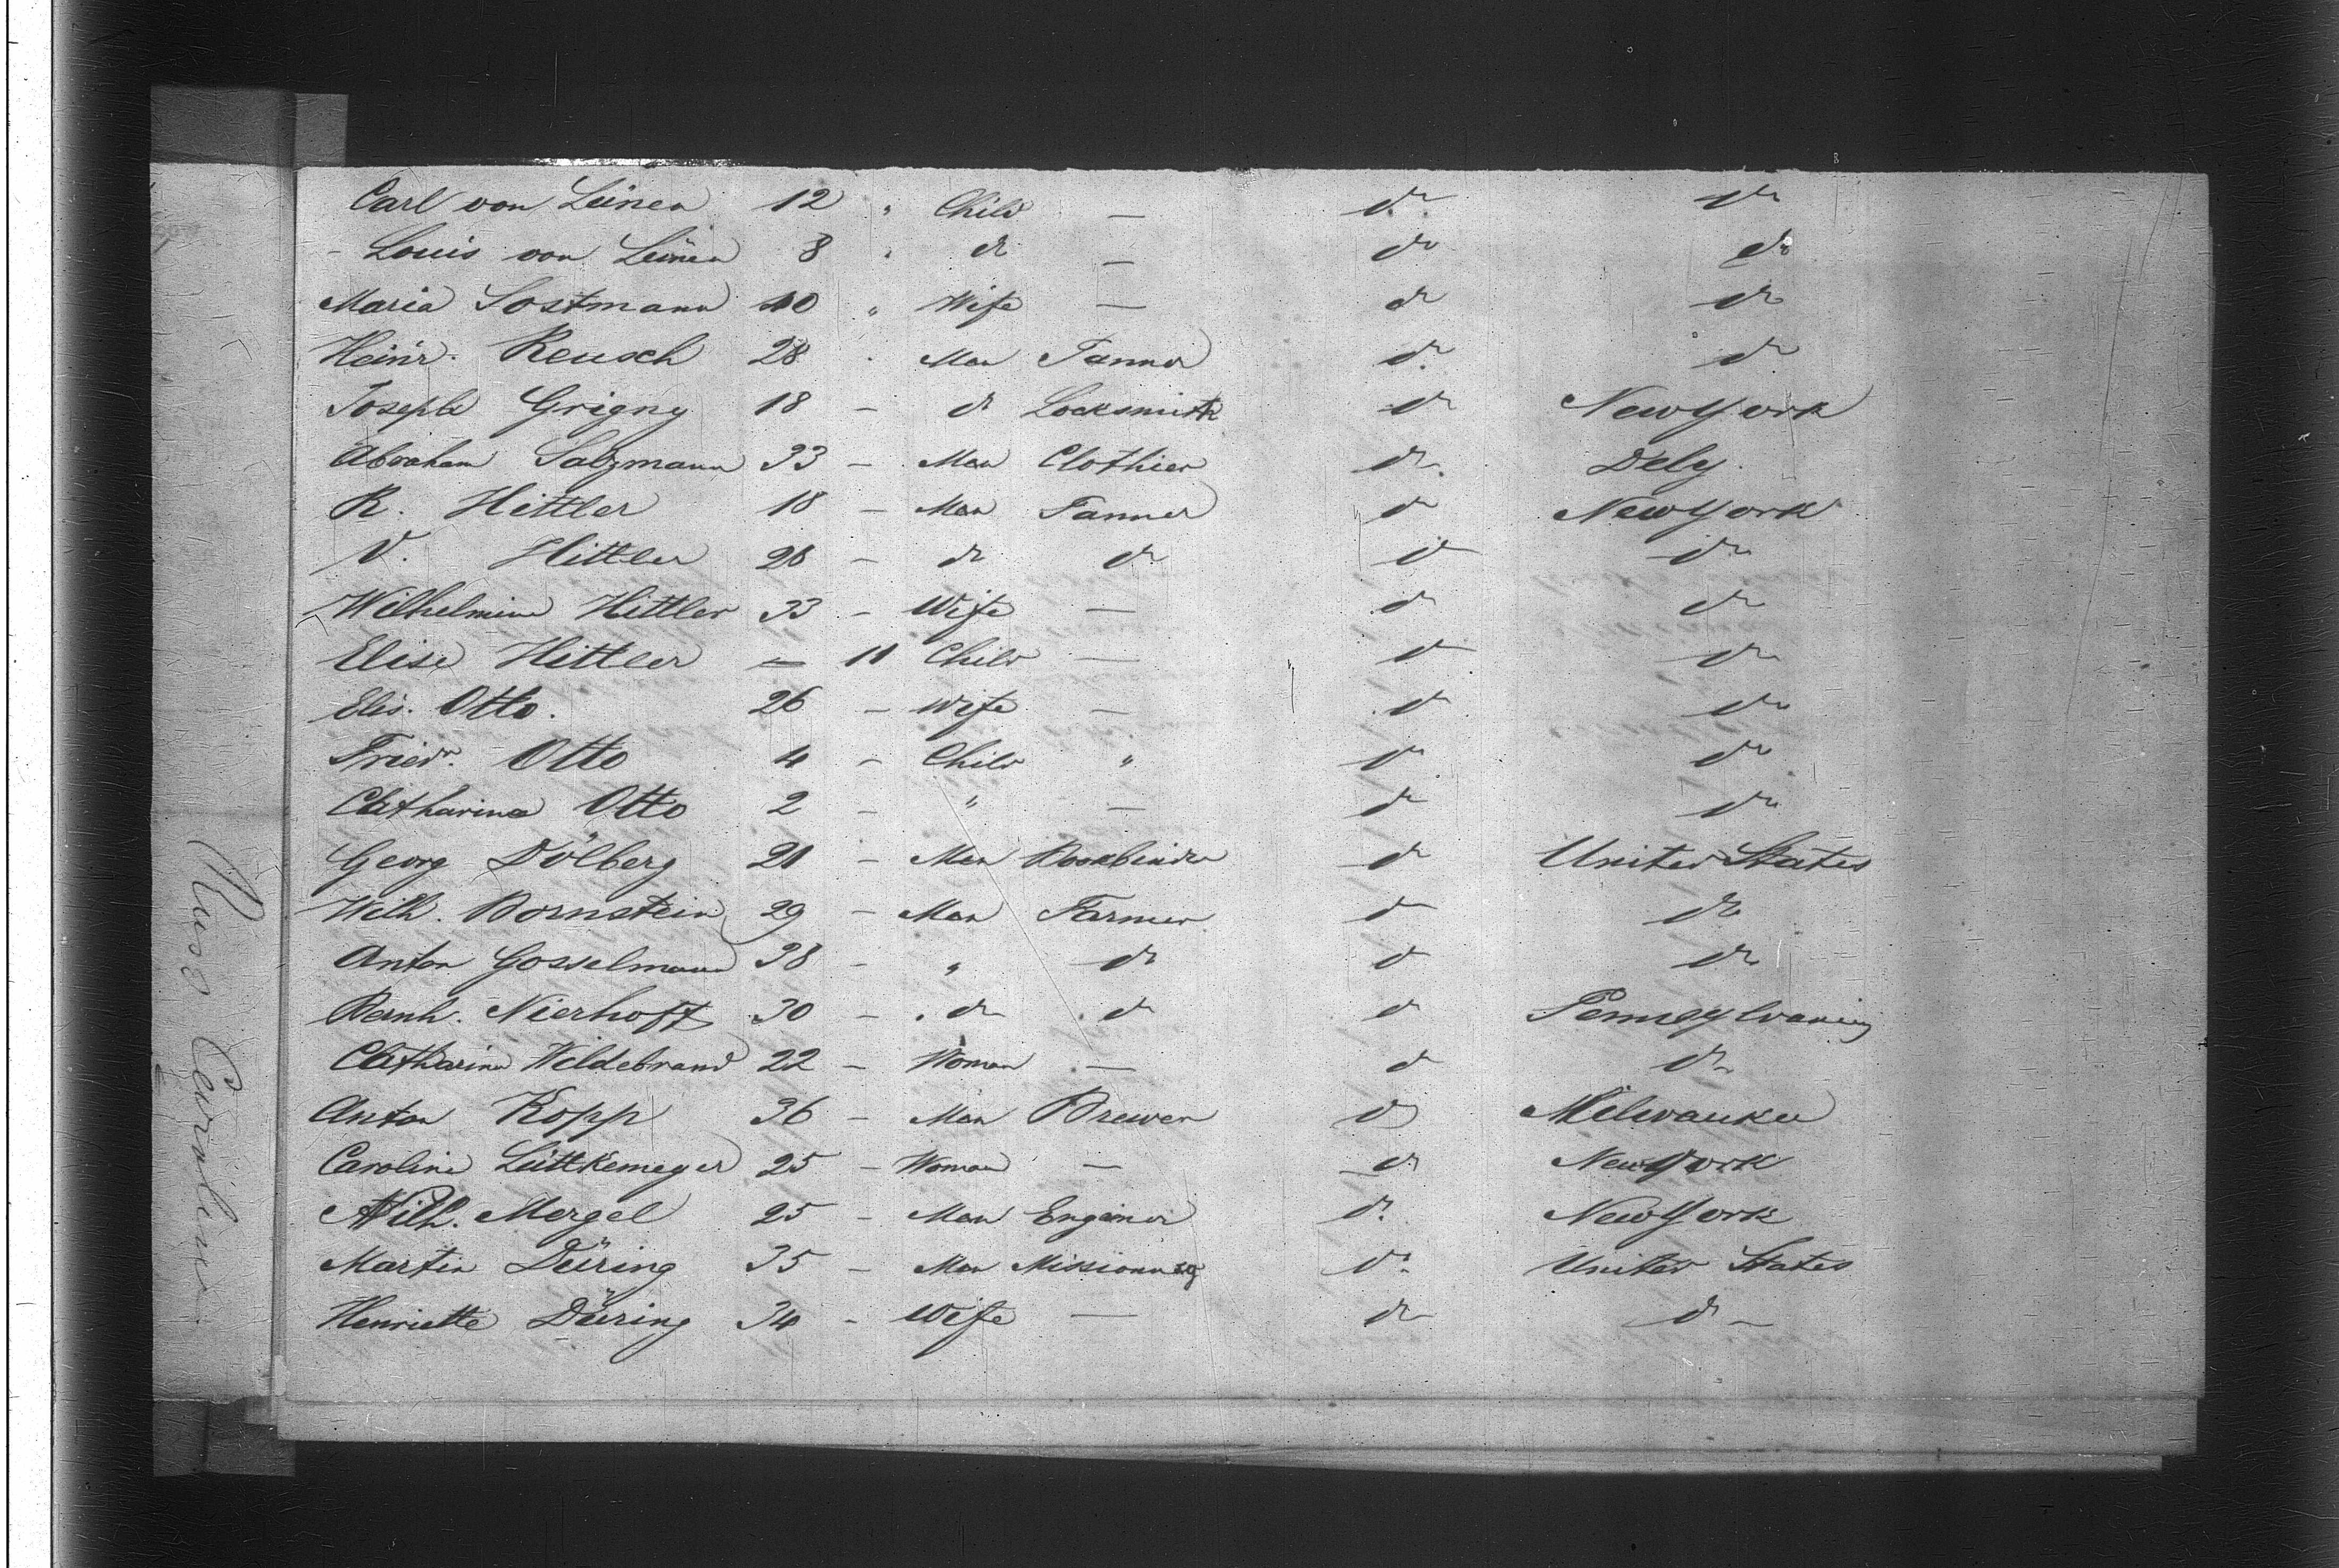 Carl von Lünen 12 " Child — do do
- Louis von Lünen 8 " do — do do
Maria Sostmann 40 " Wife — do do
Heinr. Reusch 28 " Man Tanner do do
Joseph Grigny 18 — do Locksmith do New York
Abraham Salzmann 33 — Man Clothier do
R. Hittler 18 — Man Tanner do New York
V. Hittler 26 — do do do do
Wilhelmine Hittler 33 — Wife — do do
Elise Hittler — 11 Child — do do
Elis. Otto. 26 — Wife — do do
Friedr. Otto 4 — Child " do do
Catharina Otto 2 — " — do do
Georg Dölberg 21 — Man Bookbinder do United States
Wilh. Bornstein 29 — Man Farmer do do
Anton Gosselmann 38 — " do do do
Bernh. Nierhoff 30 — do do do Pennsylvanien
Catharina Wildebrand 22 — Woman — do do
Anton Kopp 36 — Man Brewer do Milwaukee
Caroline Lüttkemeyer 25 — Woman — do New York
Wilh. Mergel 25 — Man Engineer do New York
Martin Düring 35 — Man Missionary do United States
Henriette Düring 34 — Wife — do do
Caroline